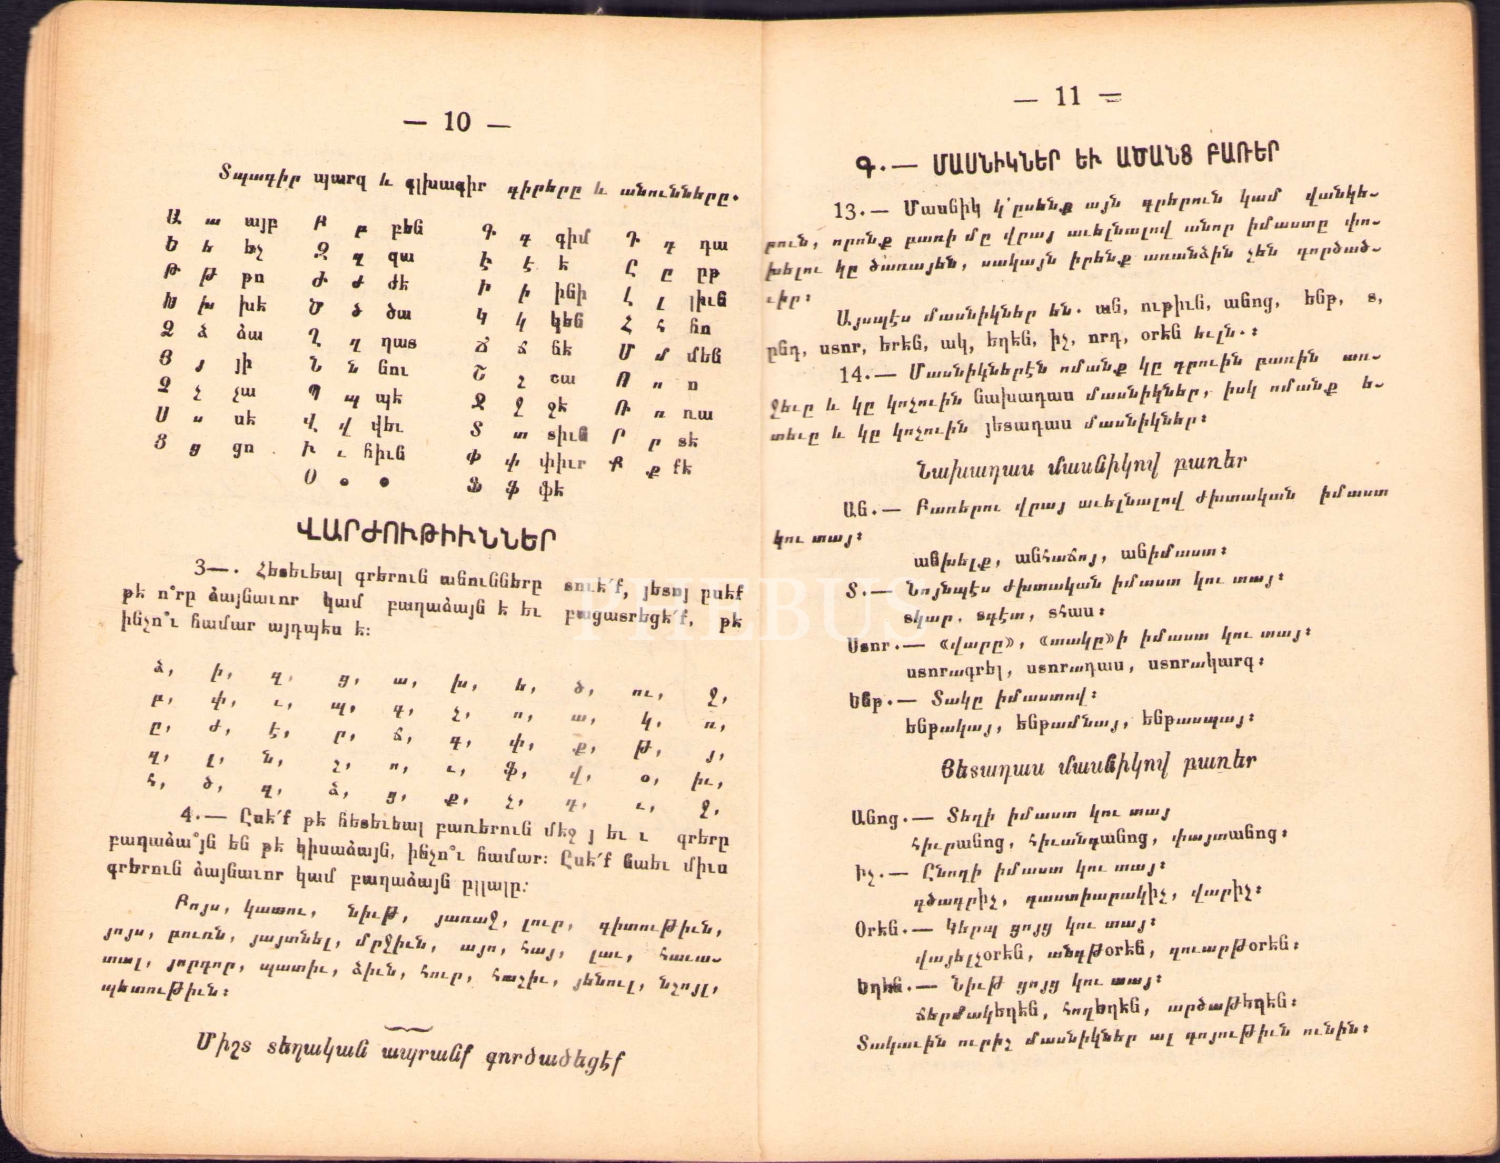 — 10 —
Տպագիր պարզ և գլխագիր գիրերը և անունները.
Ա ա այբ Բ բ բեն Գ գ գիմ Դ դ դա
Ե ե եչ Զ զ զա Է է է Ը ը ըթ
Թ թ թո Ժ ժ ժե Ի ի ինի Լ լ լիւն
Խ խ խե Ծ ծ ծա Կ կ կեն Հ հ հո
Ձ ձ ձա Ղ ղ ղատ Ճ ճ ճե Մ մ մեն
Յ յ յի Ն ն նու Շ շ շա Ո ո ո
Չ չ չա Պ պ պե Ջ ջ ջե Ռ ռ ռա
Ս ս սե Վ վ վեւ Տ տ տիւն Ր ր րե
Ց ց ցո Ւ ւ հիւն Փ փ փիւր Ք ք քե
Օ օ օ Ֆ ֆ ֆե
ՎԱՐԺՈՒԹԻՒՆՆԵՐ
3—. Հետեւեալ գրերուն անունները տուէ՛ք, յետոյ ըսէք
թէ ո՞րը ձայնաւոր կամ բաղաձայն է եւ բացատրեցէ՛ք, թէ
ինչո՞ւ համար այդպէս է:
ձ, ի, զ, ց, ա, խ, ե, ծ, ու, ջ,
բ, փ, ւ, պ, գ, չ, ո, ա, կ, ռ,
ը, ժ, է, ր, ճ, գ, փ, ք, թ, յ,
զ, լ, ն, շ, ո, ւ, ֆ, վ, օ, իւ,
հ, ծ, զ, ձ, ց, ք, չ, դ, ւ, ջ,
4.— Ըսէ՛ք թէ հետեւեալ բառերուն մէջ յ եւ ւ գրերը
բաղաձա՞յն են թէ կիսաձայն, ինչո՞ւ համար: Ըսէ՛ք նաեւ միւս
գրերուն ձայնաւոր կամ բաղաձայն ըլլալը:
Բոյս, կատու, նիւթ, յառաջ, լուր, գիտութիւն,
յոյս, բուռն, յայտնել, մրջիւն, այո, հայ, լաւ, հաւա-
տալ, յորդոր, պատիւ, ձիւն, հուր, հաշիւ, յենուլ, նշոյլ,
պետութիւն:
Միշտ տեղական ապրանք գործածեցէք
— 11 —
Գ.— ՄԱՍՆԻԿՆԵՐ ԵՒ ԱԾԱՆՑ ԲԱՌԵՐ
13.— Մասնիկ կ՚ըսենք այն գրերուն կամ վանկե-
րուն, որոնք բառի մը վրայ աւելնալով անոր իմաստը փո-
խելու կը ծառայեն, սակայն իրենք առանձին չեն գործած-
ւիր:
Այսպէս մասնիկներ են. ան, ութիւն, անոց, ենթ, տ,
ընդ, ստոր, երեն, ակ, եղեն, իչ, որդ, օրեն եւլն.:
14.— Մասնիկներէն ոմանք կը դրուին բառին առ-
ջեւը և կը կոչուին նախադաս մասնիկներ, իսկ ոմանք ե-
տեւը և կը կոչուին յետադաս մասնիկներ:
Նախադաս մասնիկով բառեր
Ան.— Բառերու վրայ աւելնալով ժխտական իմաստ
կու տայ:
անխելք, անհաճոյ, անիմաստ:
Տ.— Նոյնպէս ժխտական իմաստ կու տայ:
տկար. տգէտ, տհաս:
Ստոր.— «վարը», «տակը»ի իմաստ կու տայ:
ստորագրել, ստորադաս, ստորակարգ:
Ենթ.— Տակը իմաստով:
ենթակայ, ենթամնայ, ենթասպայ:
Յետադաս մասնիկով բառեր
Անոց.— Տեղի իմաստ կու տայ
հիւրանոց, հիւանդանոց, փայտանոց:
Իչ.— Ընողի իմաստ կու տայ:
գծագրիչ, դաստիարակիչ, վարիչ:
Օրեն.— Կերպ ցոյց կու տայ:
վայելչօրեն, անգթօրեն, զուարթօրեն:
Եղեն.— Նիւթ ցոյց կու տայ:
ճերմակեղեն, հողեղեն, արծաթեղեն:
Տակաւին ուրիշ մասնիկներ ալ գոյութիւն ունին:
PHEBUS